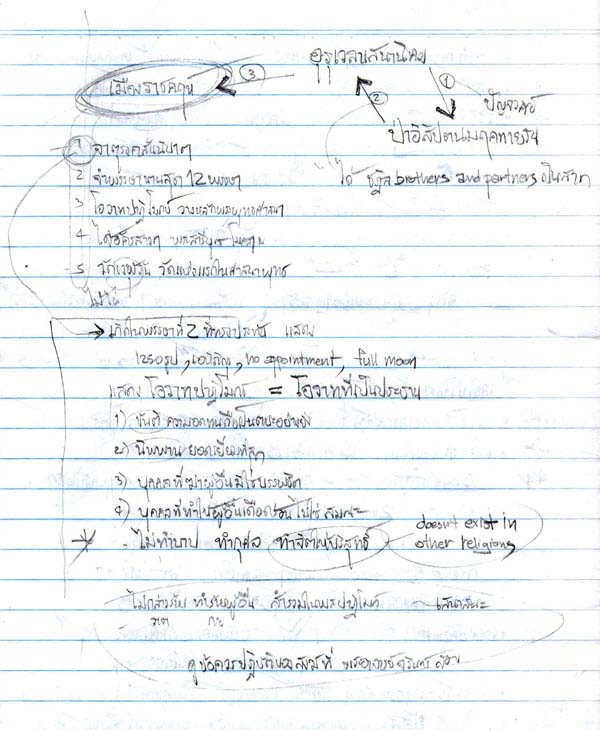 อุรุเวลาเสนานิคม
เมืองราชคฤห์ ③
①
ปัญจวคีย์
②
ป่าอิสิปตนมฤคทายวัน
ได้ ชฎิล brothers and partners เป็นสาวก
1 จาตุรงคสันนิบาต
2 จำพรรษานานสุด 12 พรรษา
3 โอวาทปาฏิโมกข์ วางหลักพระพุทธศาสนา
4 ได้อัครสาวก พระสารีบุตร โมคคัลลานะ
5 วัดเวฬุวัน วัดแห่งแรกในศาสนาพุทธ
ไม้ไผ่
→ เกิดในพรรษาที่ 2 ที่ทรงประทับ แสดง
1250 รูป, เอหิภิกขุ, no appointment, full moon
แสดง โอวาทปาฏิโมกข์ = โอวาทที่เป็นประธาน
1) ขันติ ความอดทนคือเป็นตบะอย่างยิ่ง
2) นิพพาน ยอดเยี่ยมที่สุด
3) บุคคลที่ฆ่าผู้อื่นมิใช่บรรพชิต
4) บุคคลที่ทำให้ผู้อื่นเดือดร้อน ไม่ใช่ สมณะ
- ไม่ทำบาป ทำกุศล ทำจิตให้บริสุทธิ์ - doesn't exist in
other religions
ไม่กล่าวร้าย ทำร้ายผู้อื่น สำรวมในพระปาฏิโมกข์ เสนาสนะ
วาจา กาย
ดูข้อควรปฏิบัติของสงฆ์ที่ พระอาจารย์ สอน